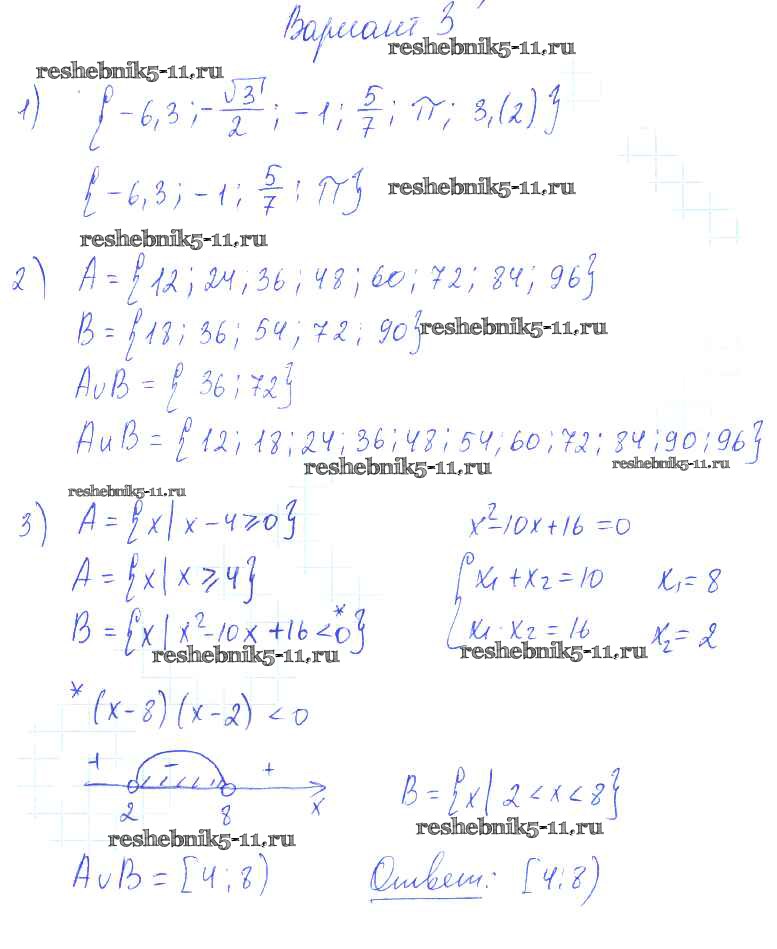 Вариант 3
reshebnik5-11,ru
reshebnik5-11,ru
1) {-6,3; -√3/2; -1; 5/7; π; 3,(2)}
{-6,3; -1; 5/7; π} reshebnik5-11,ru
reshebnik5-11,ru
2) A = {12; 24; 36; 48; 60; 72; 84; 96}
B = {18; 36; 54; 72; 90} reshebnik5-11,ru
A∪B = {36; 72}
AиB = {12; 18; 24; 36; 48; 54; 60; 72; 84; 90; 96}
reshebnik5-11,ru reshebnik5-11,ru
reshebnik5-11,ru
3) A = {x| x-4≥0} x²-10x+16=0
A = {x| x≥4} { x₁+x₂=10 x₁=8
B = {x| x²-10x+16<0*} x₁·x₂=16 x₂=2
reshebnik5-11,ru reshebnik5-11,ru
* (x-8)(x-2)<0
+ - +
2 8 x B = {x| 2<x<8}
reshebnik5-11,ru reshebnik5-11,ru
A∪B = [4;8) Ответ: [4;8)